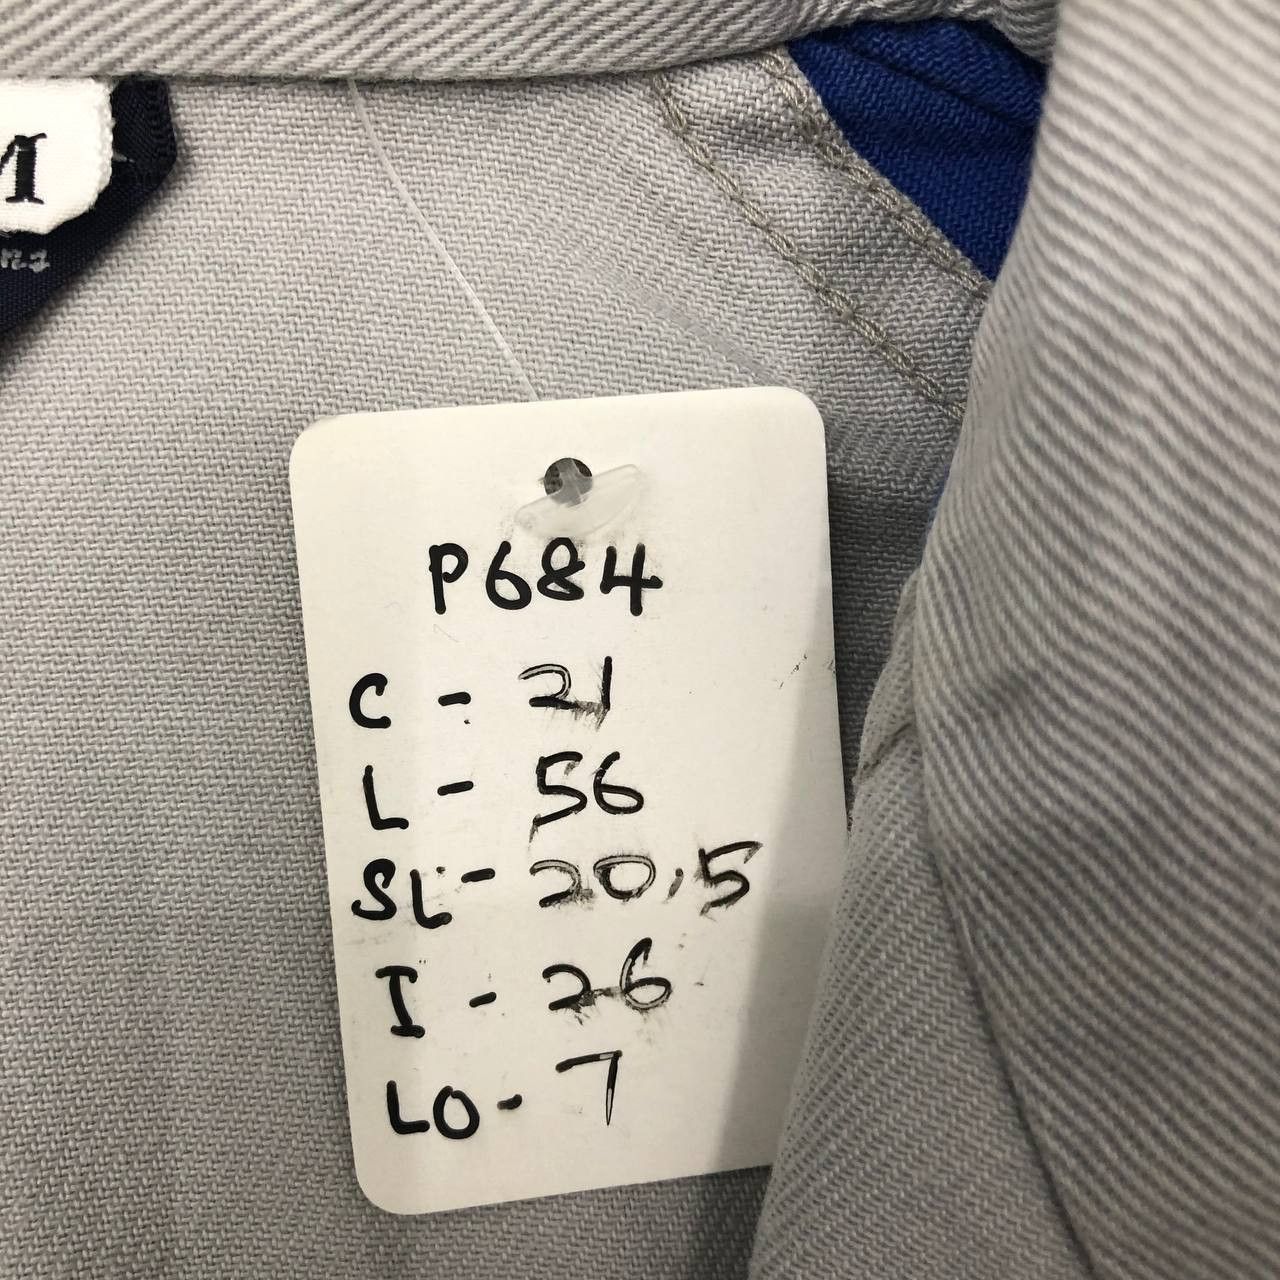 M
P684
C - 21
L - 56
SL - 20.5
I - 26
LO - 7